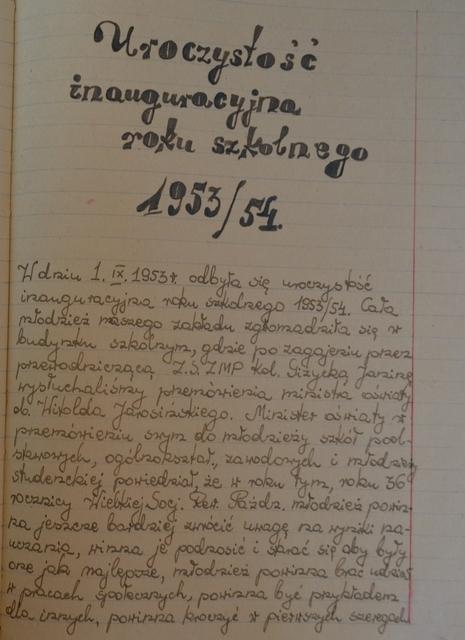 Uroczystość
inauguracyjna
roku szkolnego
1953/54.
W dniu 1.IX.1953r. odbyła się uroczystość
inauguracyjna roku szkolnego 1953/54. Cała
młodzież naszego zakładu zgromadziła się w
budynku szkolnym, gdzie po zagajeniu przez
przewodniczącą Z.S. ZMP kol. Giżycką Janinę
wysłuchaliśmy przemówienia ministra oświaty
ob. Witolda Jarosińskiego. Minister oświaty w
przemówieniu swym do młodzieży szkół pod-
stawowych, ogólnokształ., zawodowych i młodzieży
studenckiej powiedział, że w roku tym, roku 36
rocznicy Wielkiej Socj. Rew. Paźdz. młodzież powin-
na jeszcze bardziej zwrócić uwagę na wyniki na-
uczania, winna je podnosić i starać się aby były
one jak najlepsze, młodzież powinna brać udział
w pracach społecznych, powinna być przykładem
dla innych, powinna kroczyć w pierwszych szeregach